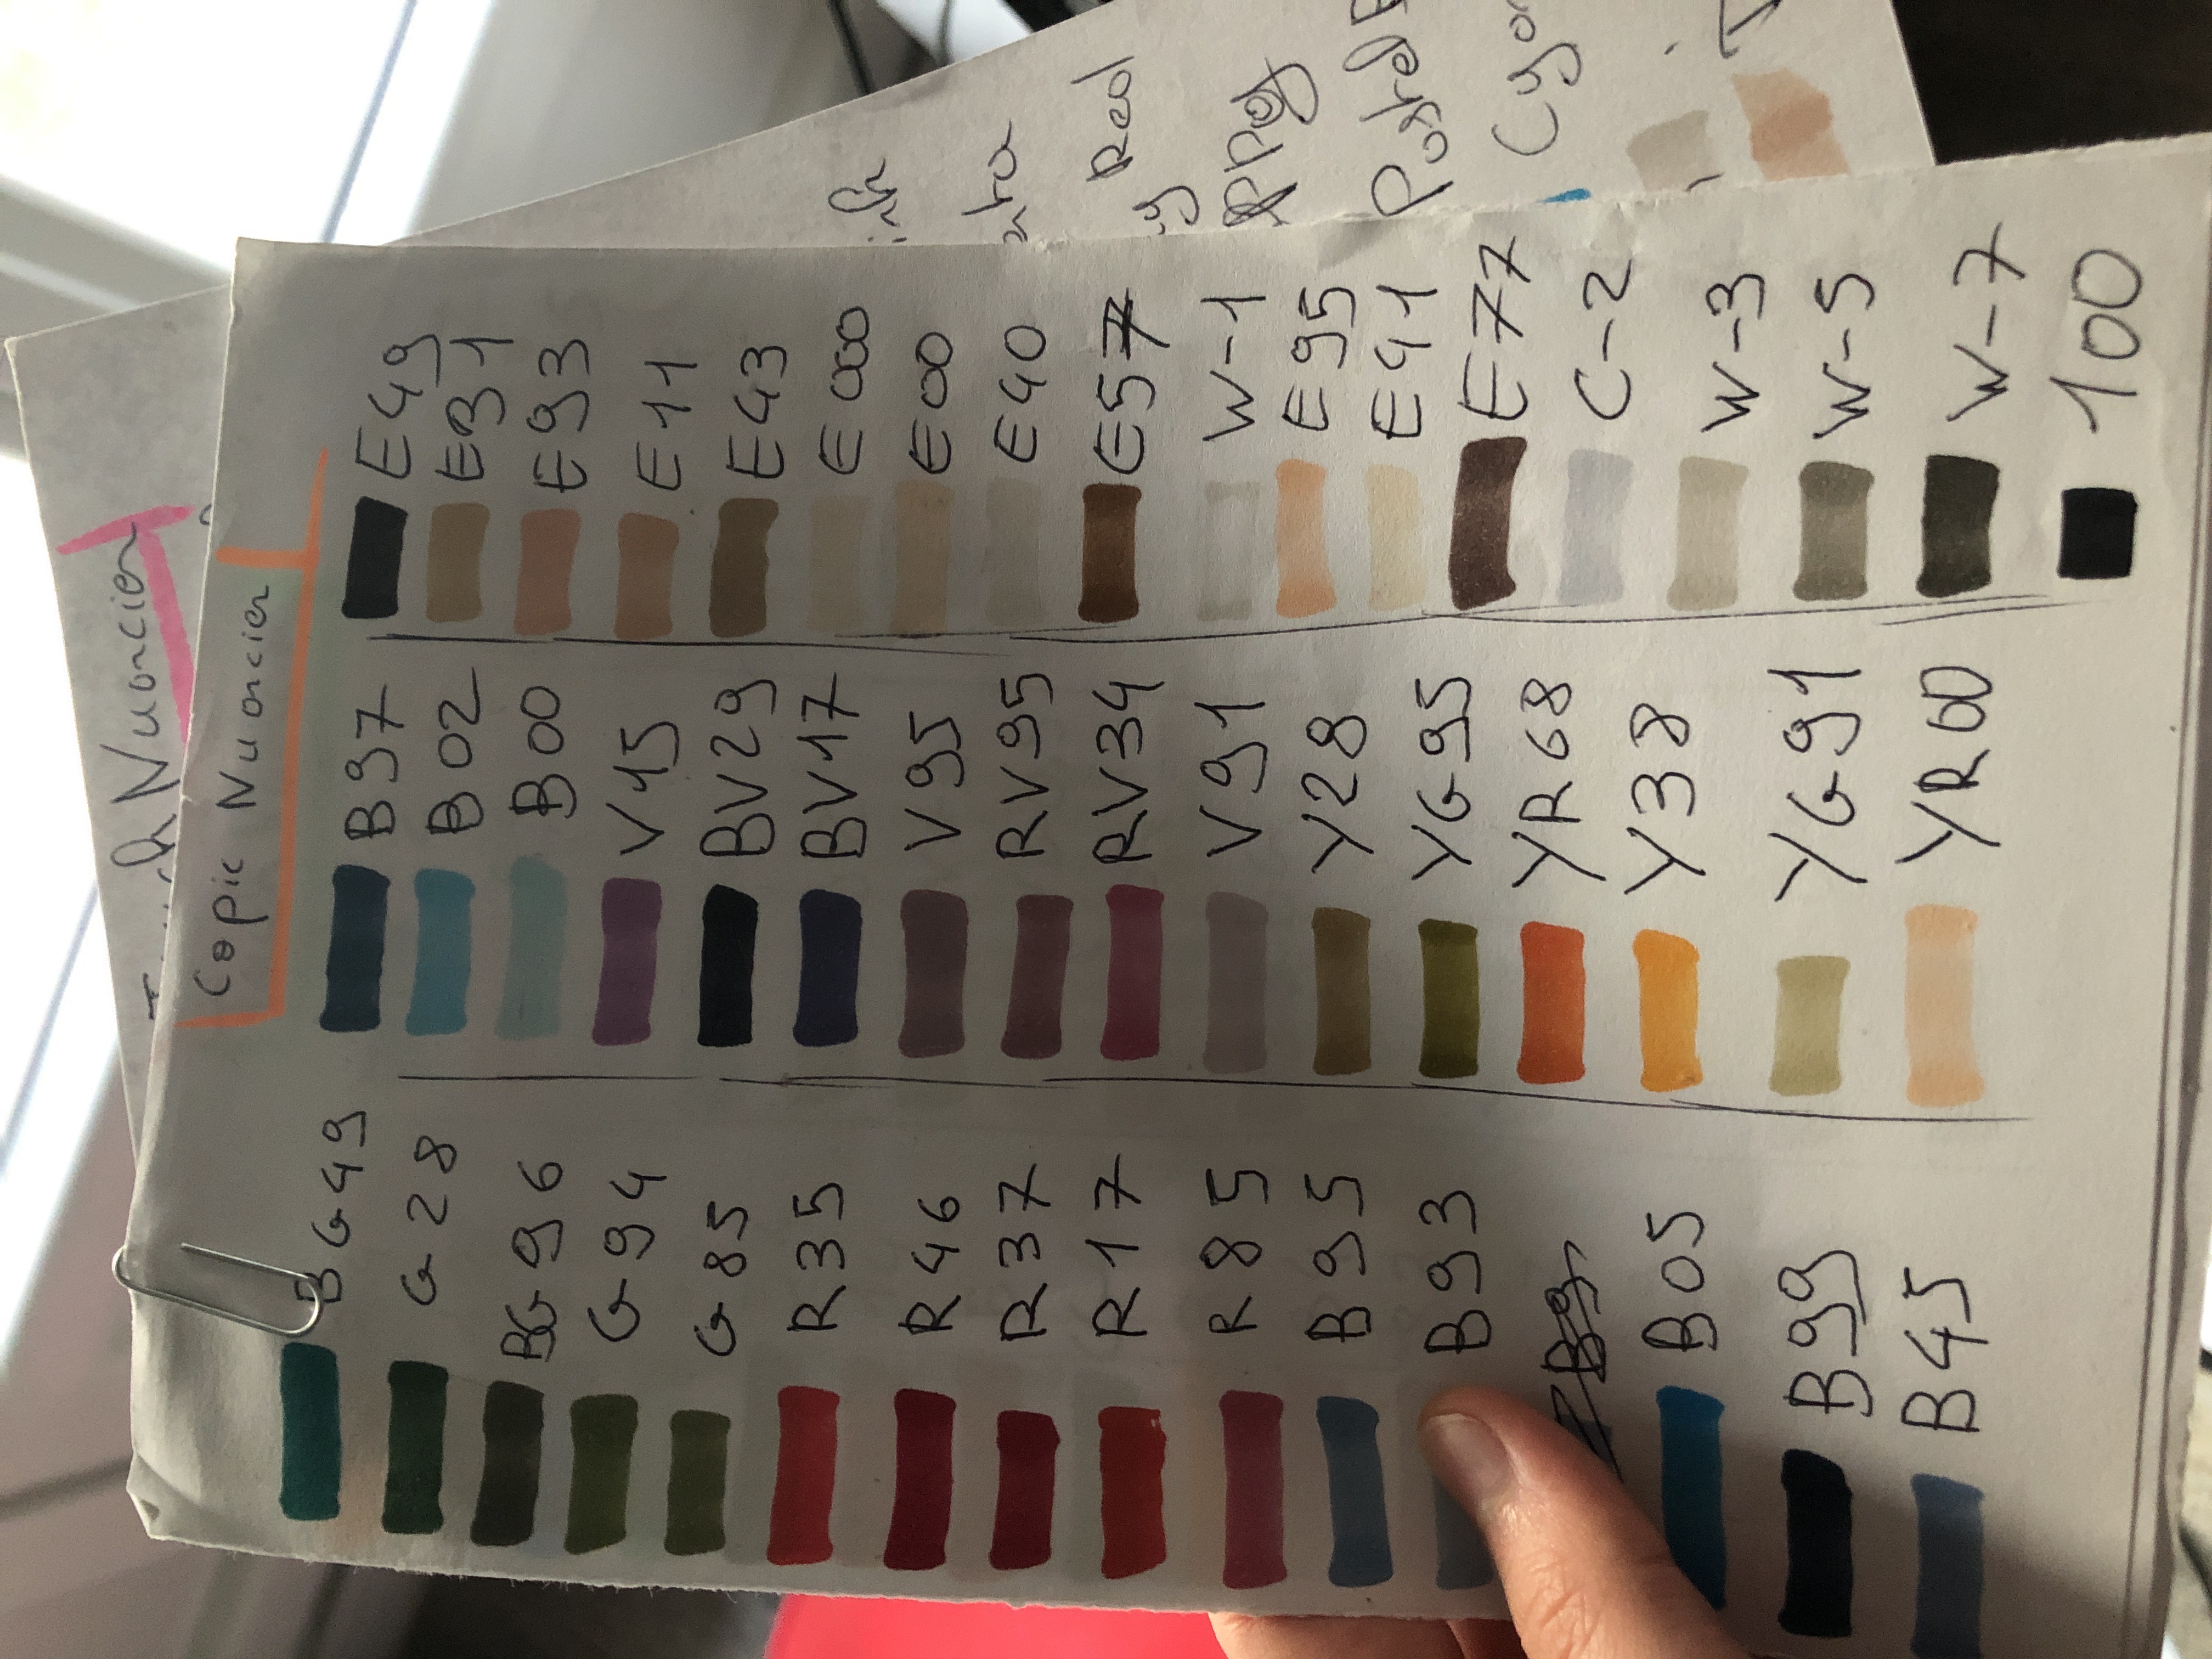 Nuancier
Copic Nuancier
BG49
G28
BG96
G94
G85
R35
R46
R37
R17
R85
B95
B93
B9
B05
B99
B45
B97
B02
B00
V15
BV29
BV17
V95
RV95
RV34
V91
Y28
YG95
YR68
Y38
YG91
YR00
E49
E31
E93
E11
E43
E000
E00
E40
E57
W-1
E95
E41
E77
C-2
W-3
W-5
W-7
100
Red
Pastel